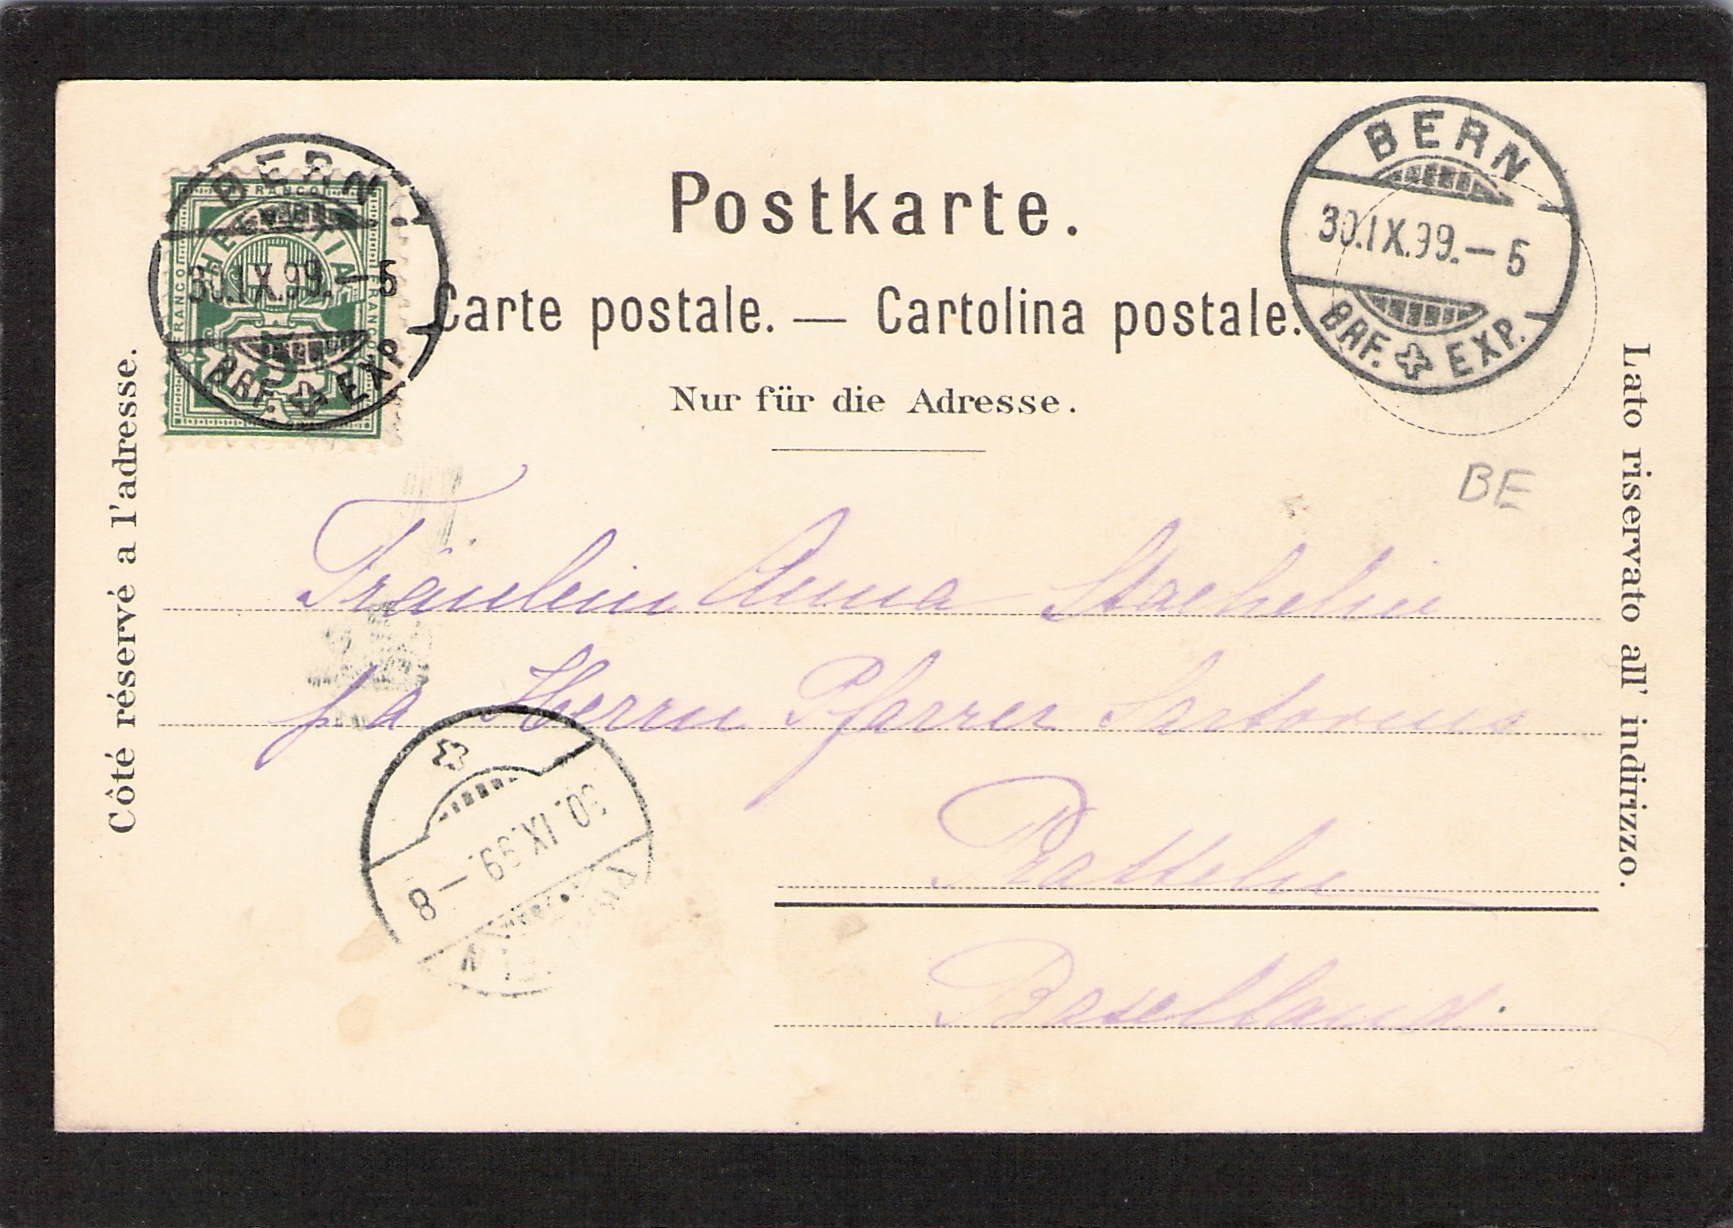 Postkarte.
Carte postale. — Cartolina postale.
Nur für die Adresse.
Côté réservé a l'adresse.
Lato riservato all' indirizzo.
FRANCO
HELVETIA
FRANCO
FRANCO
5
BERN
30.IX.99.–5
BRF. EXP.
BERN
30.IX.99.–5
BRF. EXP.
BE
Fräulein Anna Staehelin
p a Herrn Pfarrer Sartorius
Pratteln
Baselland.
30.IX.99.–8